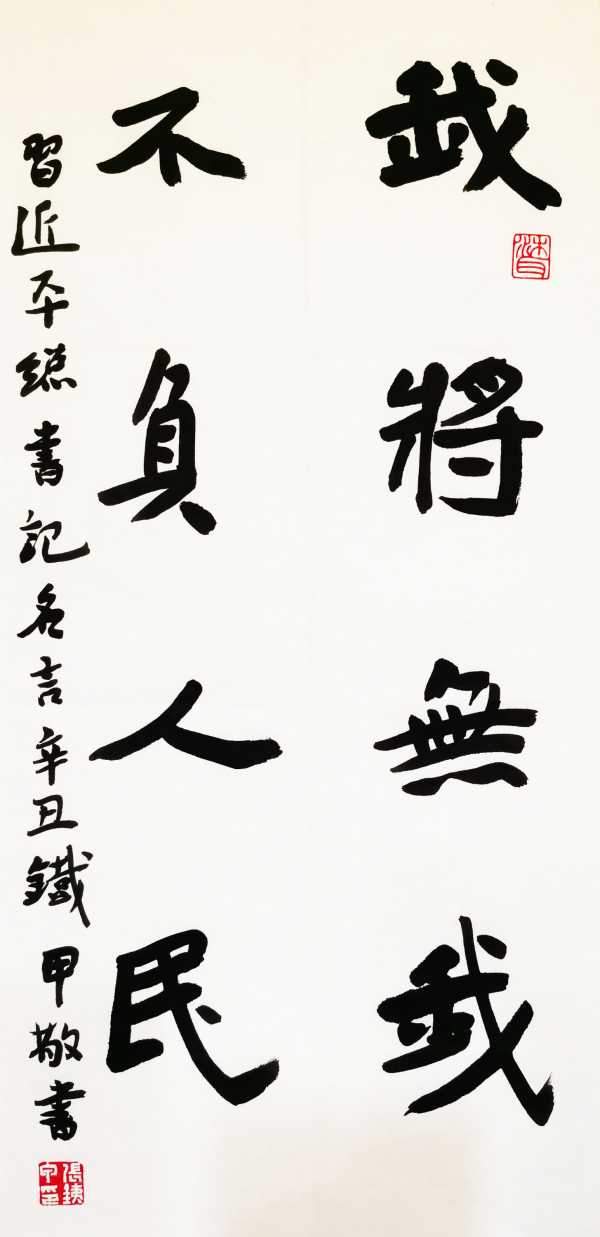 我將無我
不負人民
習近平總書記名言辛丑鐵甲敬書